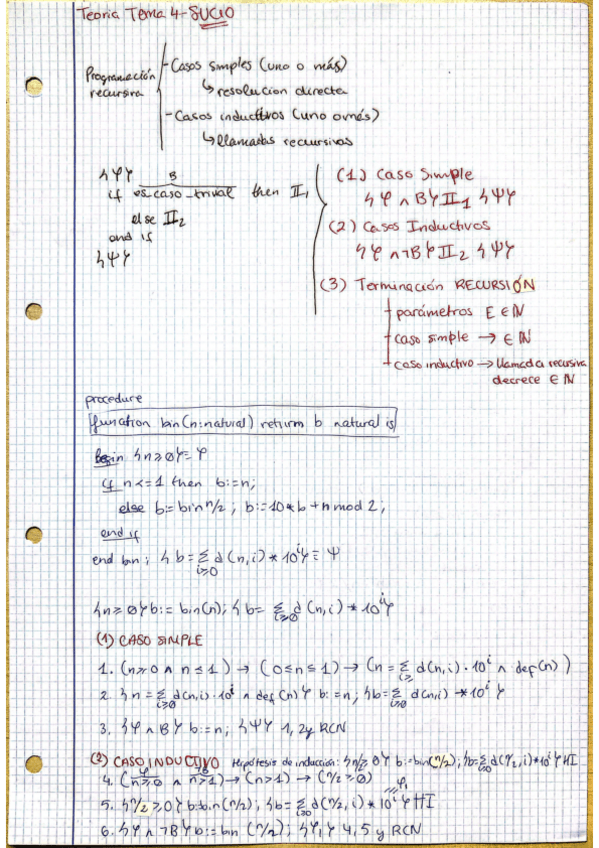 Teoria Tema 4 - SUCIO
Programación recursiva
Casos simples (uno o más)
↳ resolucion directa
Casos inductivos (uno o más)
↳ llamadas recursivas
{φ}
B
if es_caso_trivial then Π₁
else Π₂
end if
{Ψ}
(1) Caso Simple
{φ ∧ B} Π₁ {Ψ}
(2) Casos Inductivos
{φ ∧ ¬B} Π₂ {Ψ}
(3) Terminación RECURSIÓN
parámetros E ∈ ℕ
caso simple → ∈ ℕ
caso inductivo → llamada recusiva
decrece ∈ ℕ
procedure
function bin(n:natural) return b natural is
Begin {n≥0} ≡ φ
if n<=1 then b:=n;
else b=bin n/2; b:=10*b + n mod 2;
end if
end bin; {b = Σ i≥0 d(n,i) * 10^i} ≡ Ψ
{n≥0} b:= bin(n); {b = Σ i≥0 d(n,i) * 10^i}
(1) CASO SIMPLE
1. (n≥0 ∧ n≤1) → (0≤n≤1) → (n = Σ i≥ d(n,i) · 10^i ∧ def(n))
2 {n = Σ i≥0 d(n,i) · 10^i ∧ def(n)} b:=n; {b = Σ i≥0 d(n,i) * 10^i}
3. {φ ∧ B} b:=n; {Ψ} 1, 2 y RCN
(2) CASO INDUCTIVO Hipótesis de inducción: {n/2 ≥ 0} b:=bin(n/2); {b = Σ i≥0 d(n/2,i)*10^i} HI
φ ¬B
4. (n≥0 ∧ n>1) → (n>1) → (n/2 ≥ 0)
φ₁
5. {n/2 ≥0} b:bin(n/2); {b = Σ i≥0 d(n/2,i) * 10^i} HI
6. {φ ∧ ¬B} b:= bin (n/2); {φ₁} 4, 5 y RCN